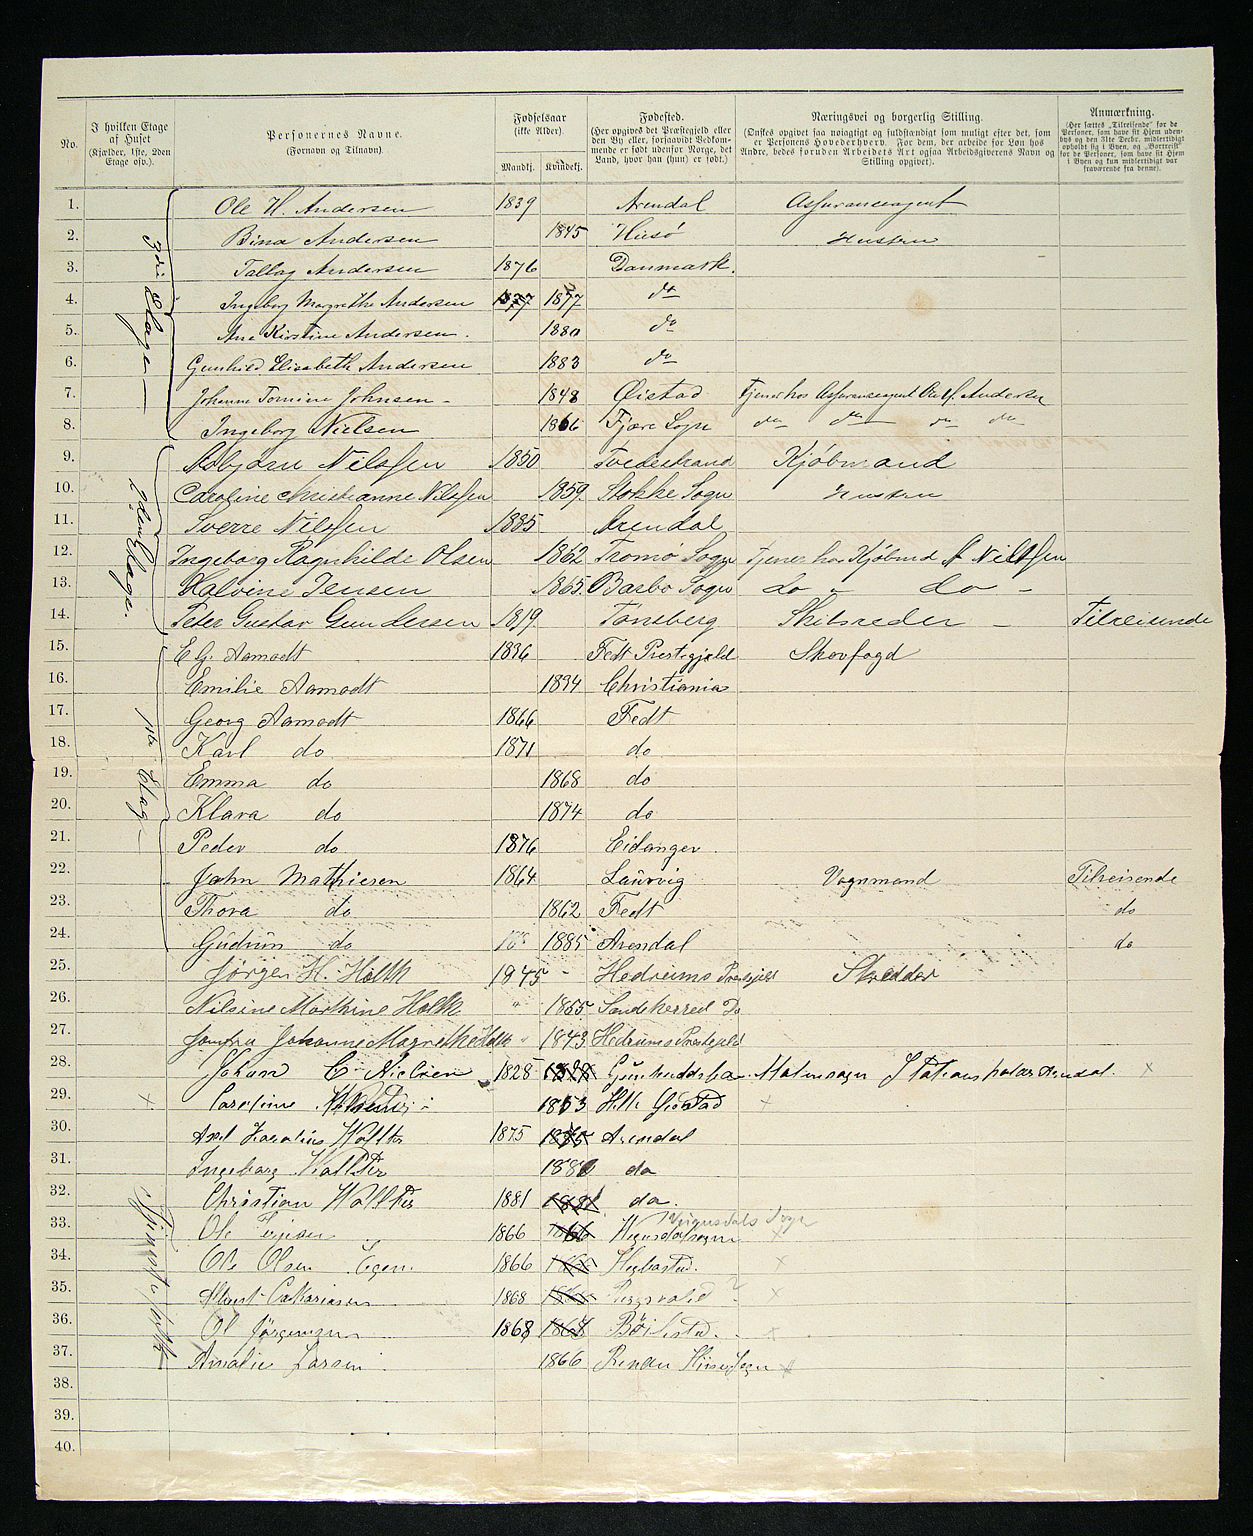 No. | I hvilken Etage af Huset (Kjælder, 1ste, 2den Etage osv.). | Personernes Navne. (Fornavn og Tilnavn). | Fødselsaar (ikke Alder). Mandkj. | Kvindekj. | Fødested. (Her opgives det Præstegjeld eller den By eller, forsaavidt Vedkommende er født udenfor Norge, det Land, hvor han (hun) er født.) | Næringsvei og borgerlig Stilling. (Ønskes opgivet saa nøiagtigt og fuldstændigt som muligt efter det, som er Personens Hovederhverv. For dem, der arbeide for Løn hos Andre, bedes foruden Arbeidets Art ogsaa Arbeidsgiverens Navn og Stilling opgivet). | Anmærkning. (Her sættes „Tilreisende“ for de Personer, som have sit Hjem udenbys og den 31te Decbr. midlertidigt opholdt sig i Byen, og „Bortreist“ for de Personer, som have sit Hjem i Byen og kun midlertidigt var fraværende fra denne).
1. Ole H. Andersen 1839 Arendal Assuranseagent
2. Bina Andersen 1845 Hisø Hustru
3. Andersen 1876 Danmark.
4. Ingeborg Margrethe Andersen 1877 1877 do
5. Ane Kirstine Andersen. 1880 do
6. Gunhild Elisabeth Andersen 1883 do
7. Johanne Tomine Johnsen - 1848 Øiestad Tjener hos Assuranseagent Ole H. Andersen
8. Ingeborg Nielsen 1866 Fjære Sogn do do do do
9. Asbjørn Nilssen 1850 Tvedestrand Kjøbmand
10. Caroline Christianne Nilssen 1859 Stokke Sogn Hustru
11. Sverre Nilssen 1885 Arendal
12. Ingeborg Ragnhilde Olsen 1862 Tromø Sogn Tjener hos Kjøbmd A Nilssen
13. Halvine Jensen 1865. Barbo Sogn do " do -
14. Peter Gustav Gundersen 1819 Tønsberg Skibsreder - Tilreisende
15. E G. Aamodt 1836 Fedt Prestegjæld Skovfogd
16. Emilie Aamodt 1834 Christiania
17. Georg Aamodt 1866 Fedt
18. Karl do 1871 do
19. Emma do 1868 do
20. Klara do 1874 do
21. Peder do 1876 Eidanger.
22. John Mathiesen 1864 Laurvig Vognmand Tilreisende
23. Thora do 1862 Fedt do
24. Gudrun do 1885 Arendal do
25. Jørgen H. Holth 1845 - Hedrums Prestgjeld Skredder
26. Nilsine Marthine Holth " 1865 Sandeherred Do
27. Jomfru Johanne Magrethe Holth " 1843 Hedrums Prestgjeld
28. Johan C. Nielsen 1825 Arendal. ×
29. × Caroline 1853 ×
30. Axel Wollter 1875 1875 Arendal
31. Ingeborg Wollter 1880 do
32. Christian Wollter 1881 1881 do.
33. Ole 1866 1866 Vegusdals Sogn ×
34. Ole Olsen 1866 ×
35. 1868 ? ×
36. Ol Jørgensen 1868 1868 ×
37. Amalie Larsen 1866 ×
38.
39.
40.